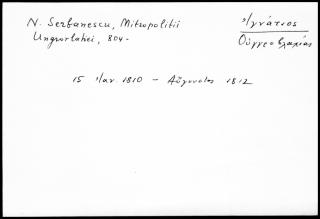 N. Șerbanescu, Mitropolitii
Ungrovlahiei, 804-
Ἰγνάτιος
Οὑγγροβλαχίας
15 Ἰαν. 1810 - Αὔγουστος 1812